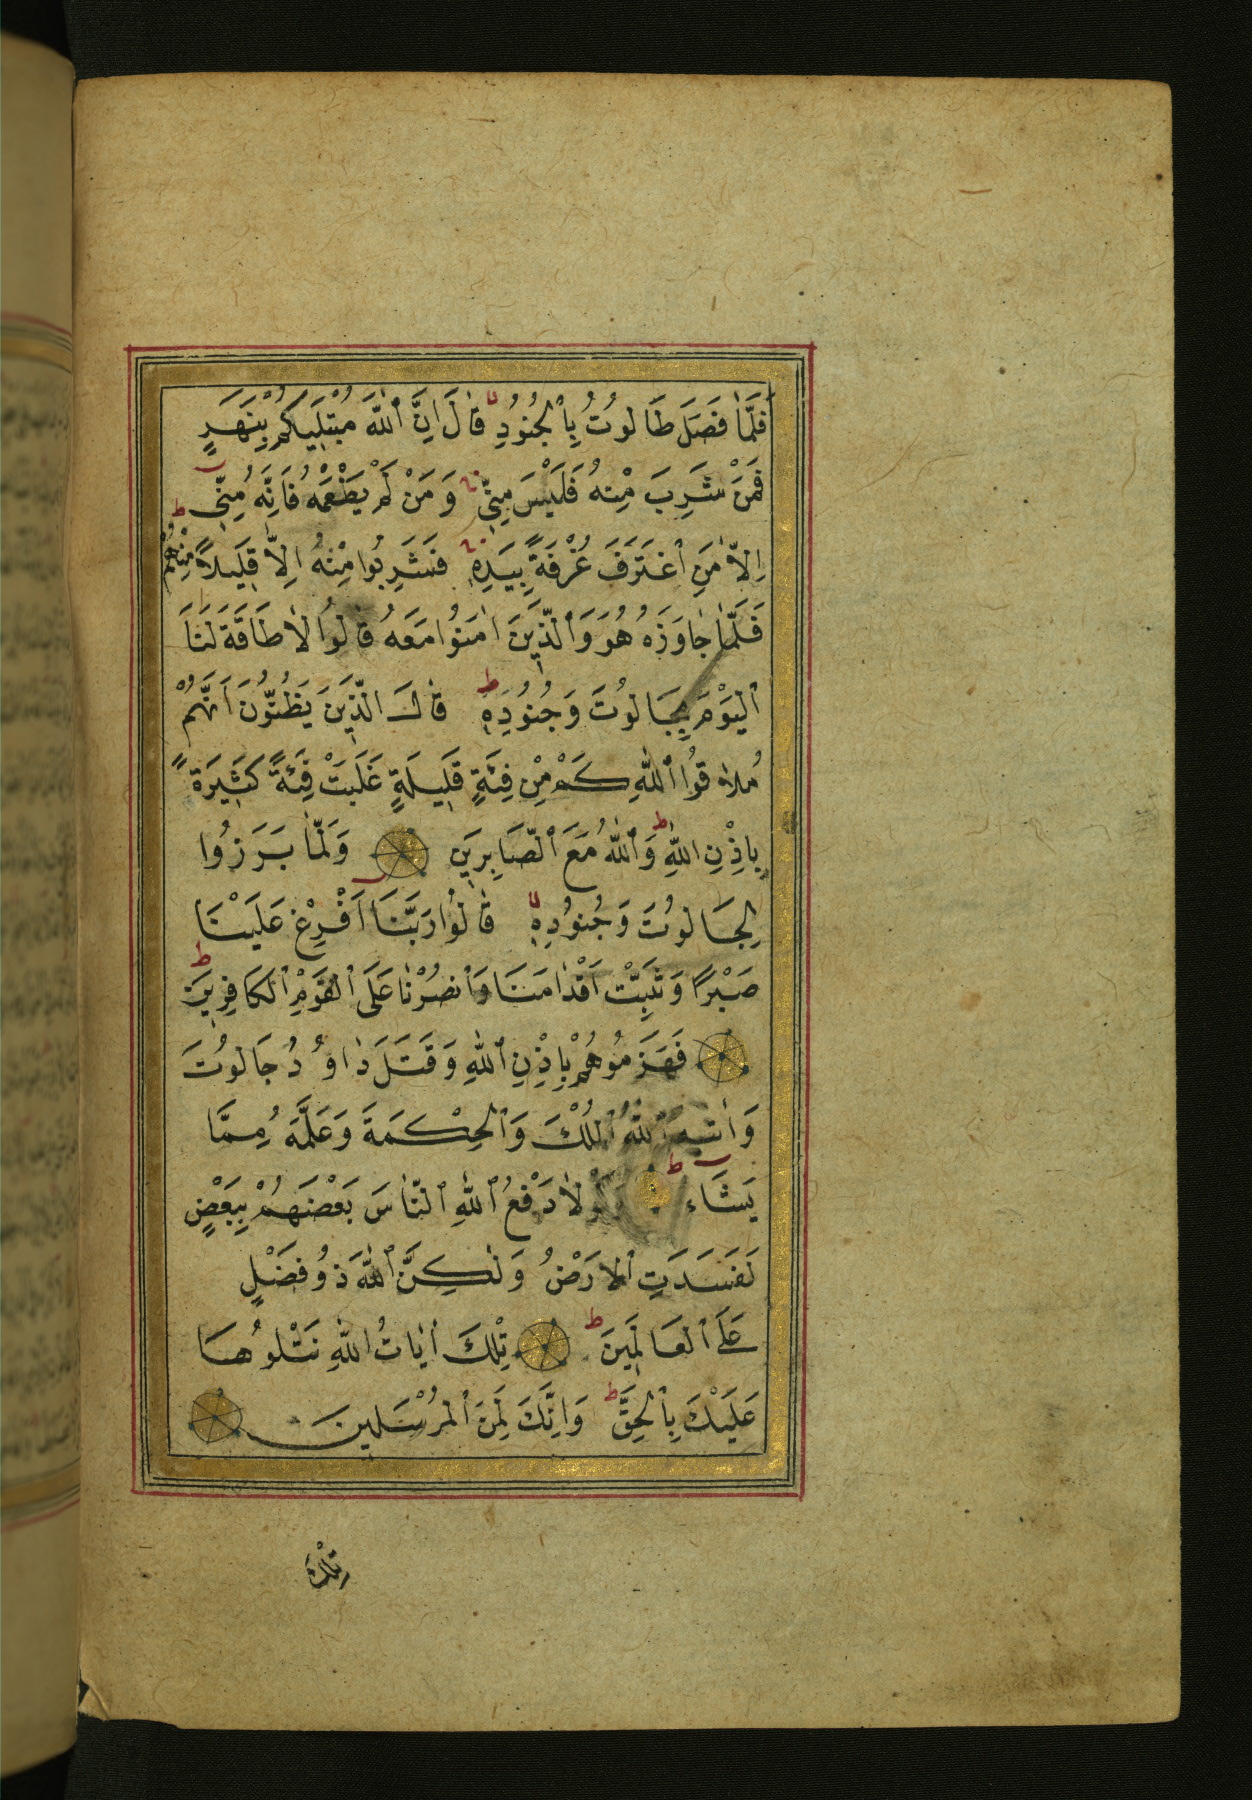 فَلَمَّا فَصَلَ طَالُوتُ بِٱلْجُنُودِ قَالَ اِنَّ ٱللّٰهَ مُبْتَلٖيكُمْ بِنَهَرٍ
فَمَنْ شَرِبَ مِنْهُ فَلَيْسَ مِنّٖى وَمَنْ لَمْ يَطْعَمْهُ فَاِنَّهُ مِنّٖى
اِلَّا مَنِ ٱغْتَرَفَ غُرْفَةً بِيَدِهٖ فَشَرِبُوا مِنْهُ اِلَّا قَلٖيلاً مِنْهُمْ
فَلَمَّا جَاوَزَهُ هُوَ وَٱلَّذٖينَ اٰمَنُوا مَعَهُ قَالُوا لَا طَاقَةَ لَنَا
ٱلْيَوْمَ بِجَالُوتَ وَجُنُودِهٖ قَالَ الَّذٖينَ يَظُنُّونَ اَنَّهُمْ
مُلَاقُوا ٱللّٰهِ كَمْ مِنْ فِئَةٍ قَلٖيلَةٍ غَلَبَتْ فِئَةً كَثٖيرَةً
بِاِذْنِ اللّٰهِ وَٱللّٰهُ مَعَ ٱلصَّابِرٖينَ وَلَمَّا بَرَزُوا
لِجَالُوتَ وَجُنُودِهٖ قَالُوا رَبَّنَا اَفْرِغْ عَلَيْنَا
صَبْرًا وَثَبِّتْ اَقْدَامَنَا وَٱنْصُرْنَا عَلَى ٱلْقَوْمِ ٱلْكَافِرٖينَ
فَهَزَمُوهُمْ بِاِذْنِ ٱللّٰهِ وَقَتَلَ دَاوُدُ جَالُوتَ
وَاٰتٰيهُ ٱللّٰهُ ٱلْمُلْكَ وَٱلْحِكْمَةَ وَعَلَّمَهُ مِمَّا
يَشَاءُ وَلَوْلَا دَفْعُ ٱللّٰهِ ٱلنَّاسَ بَعْضَهُمْ بِبَعْضٍ
لَفَسَدَتِ ٱلْاَرْضُ وَلٰكِنَّ ٱللّٰهَ ذُو فَضْلٍ
عَلَى ٱلْعَالَمٖينَ تِلْكَ اٰيَاتُ اللّٰهِ نَتْلُوهَا
عَلَيْكَ بِٱلْحَقِّ وَاِنَّكَ لَمِنَ ٱلْمُرْسَلٖينَ
تِلْكَ